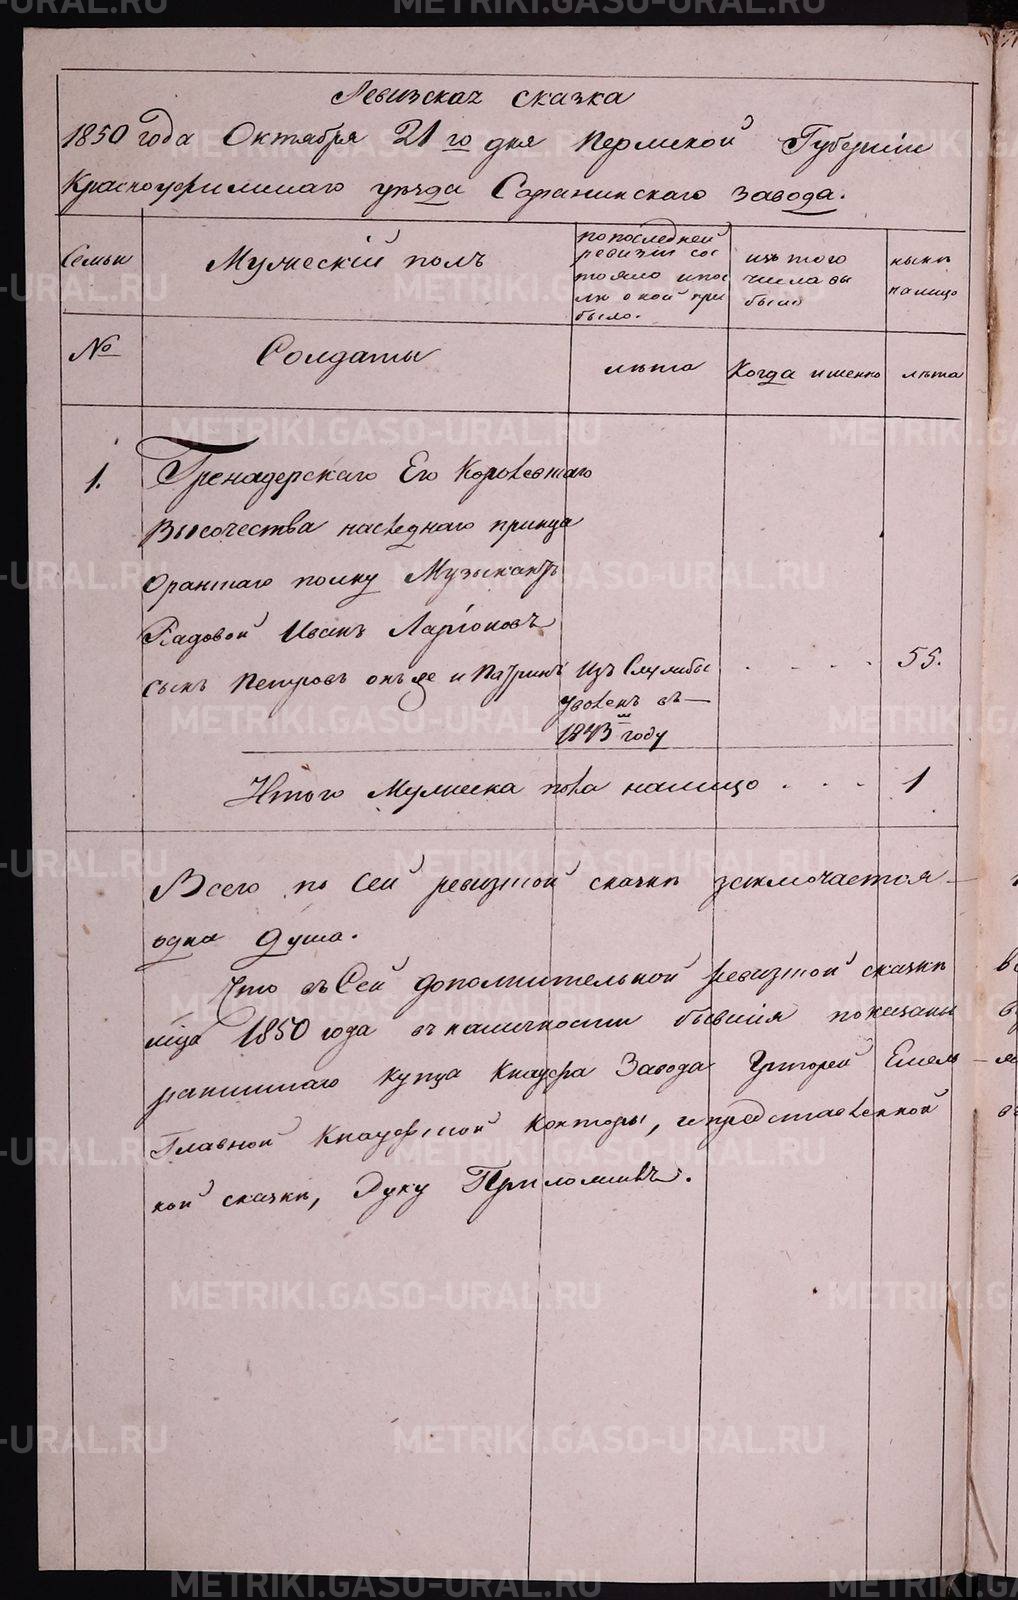 Ревизская сказка
1850 года Октября 21го дня Пермской Губернiи
Красноуфимскаго уѣзда Саранинскаго завода.
Семьи
Мужескiй полъ
по последней
ревизiи сос
тояло и пос
лѣ оной при
было.
изъ того
числа вы
было
нынѣ
на лицо
№
Солдаты
лѣта
Когда именно
лѣта
1.
Гренадерскаго Его Королевскаго
Высочества наследнаго принца
Оранскаго полку Музыкантъ
Рядовой Иванъ Ларiоновъ
сынъ Петровъ онъ же и Патринъ
Изъ Службы
уволенъ въ
1843м году
55.
Итого Мужеска пола налицо
1
Всего по сей ревизской сказкѣ заключается
одна душа.
Что въ Сей дополнительной ревизской сказкѣ
мца 1850 года въ наличности бывшiя показаны
ранинскаго купца Кнауфа Завода Григорей Емель
Главной Кнауфской Конторы, и представленной
кой сказкѣ, Руку Приложилъ.
METRIKI.GASO-URAL.RU